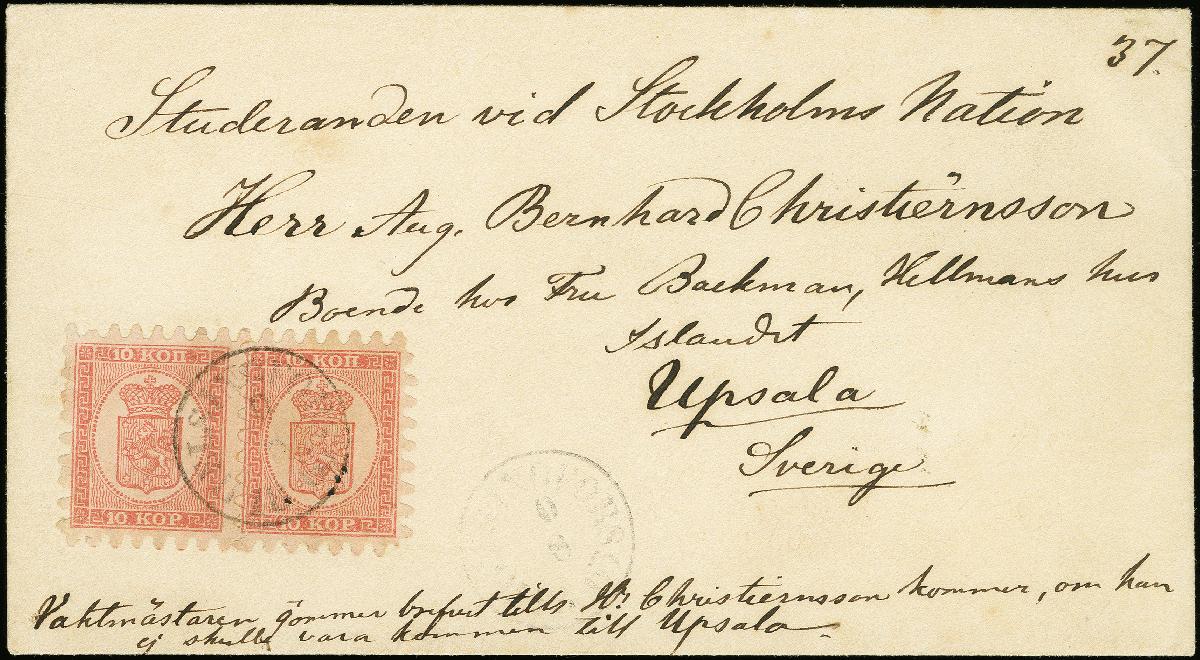 37.
Studeranden vid Stockholms Nation
Herr Aug. Bernhard Christiernsson
Boende hos Fru Backman, Hellmans hus
Islandet
Upsala
Sverige
10 КОП. 10 КОП.
10 KOP. 10 KOP.
Vaktmästaren gömmer brefvet tills Hr Christiernsson kommer, om han
ej skulle vara kommen till Upsala